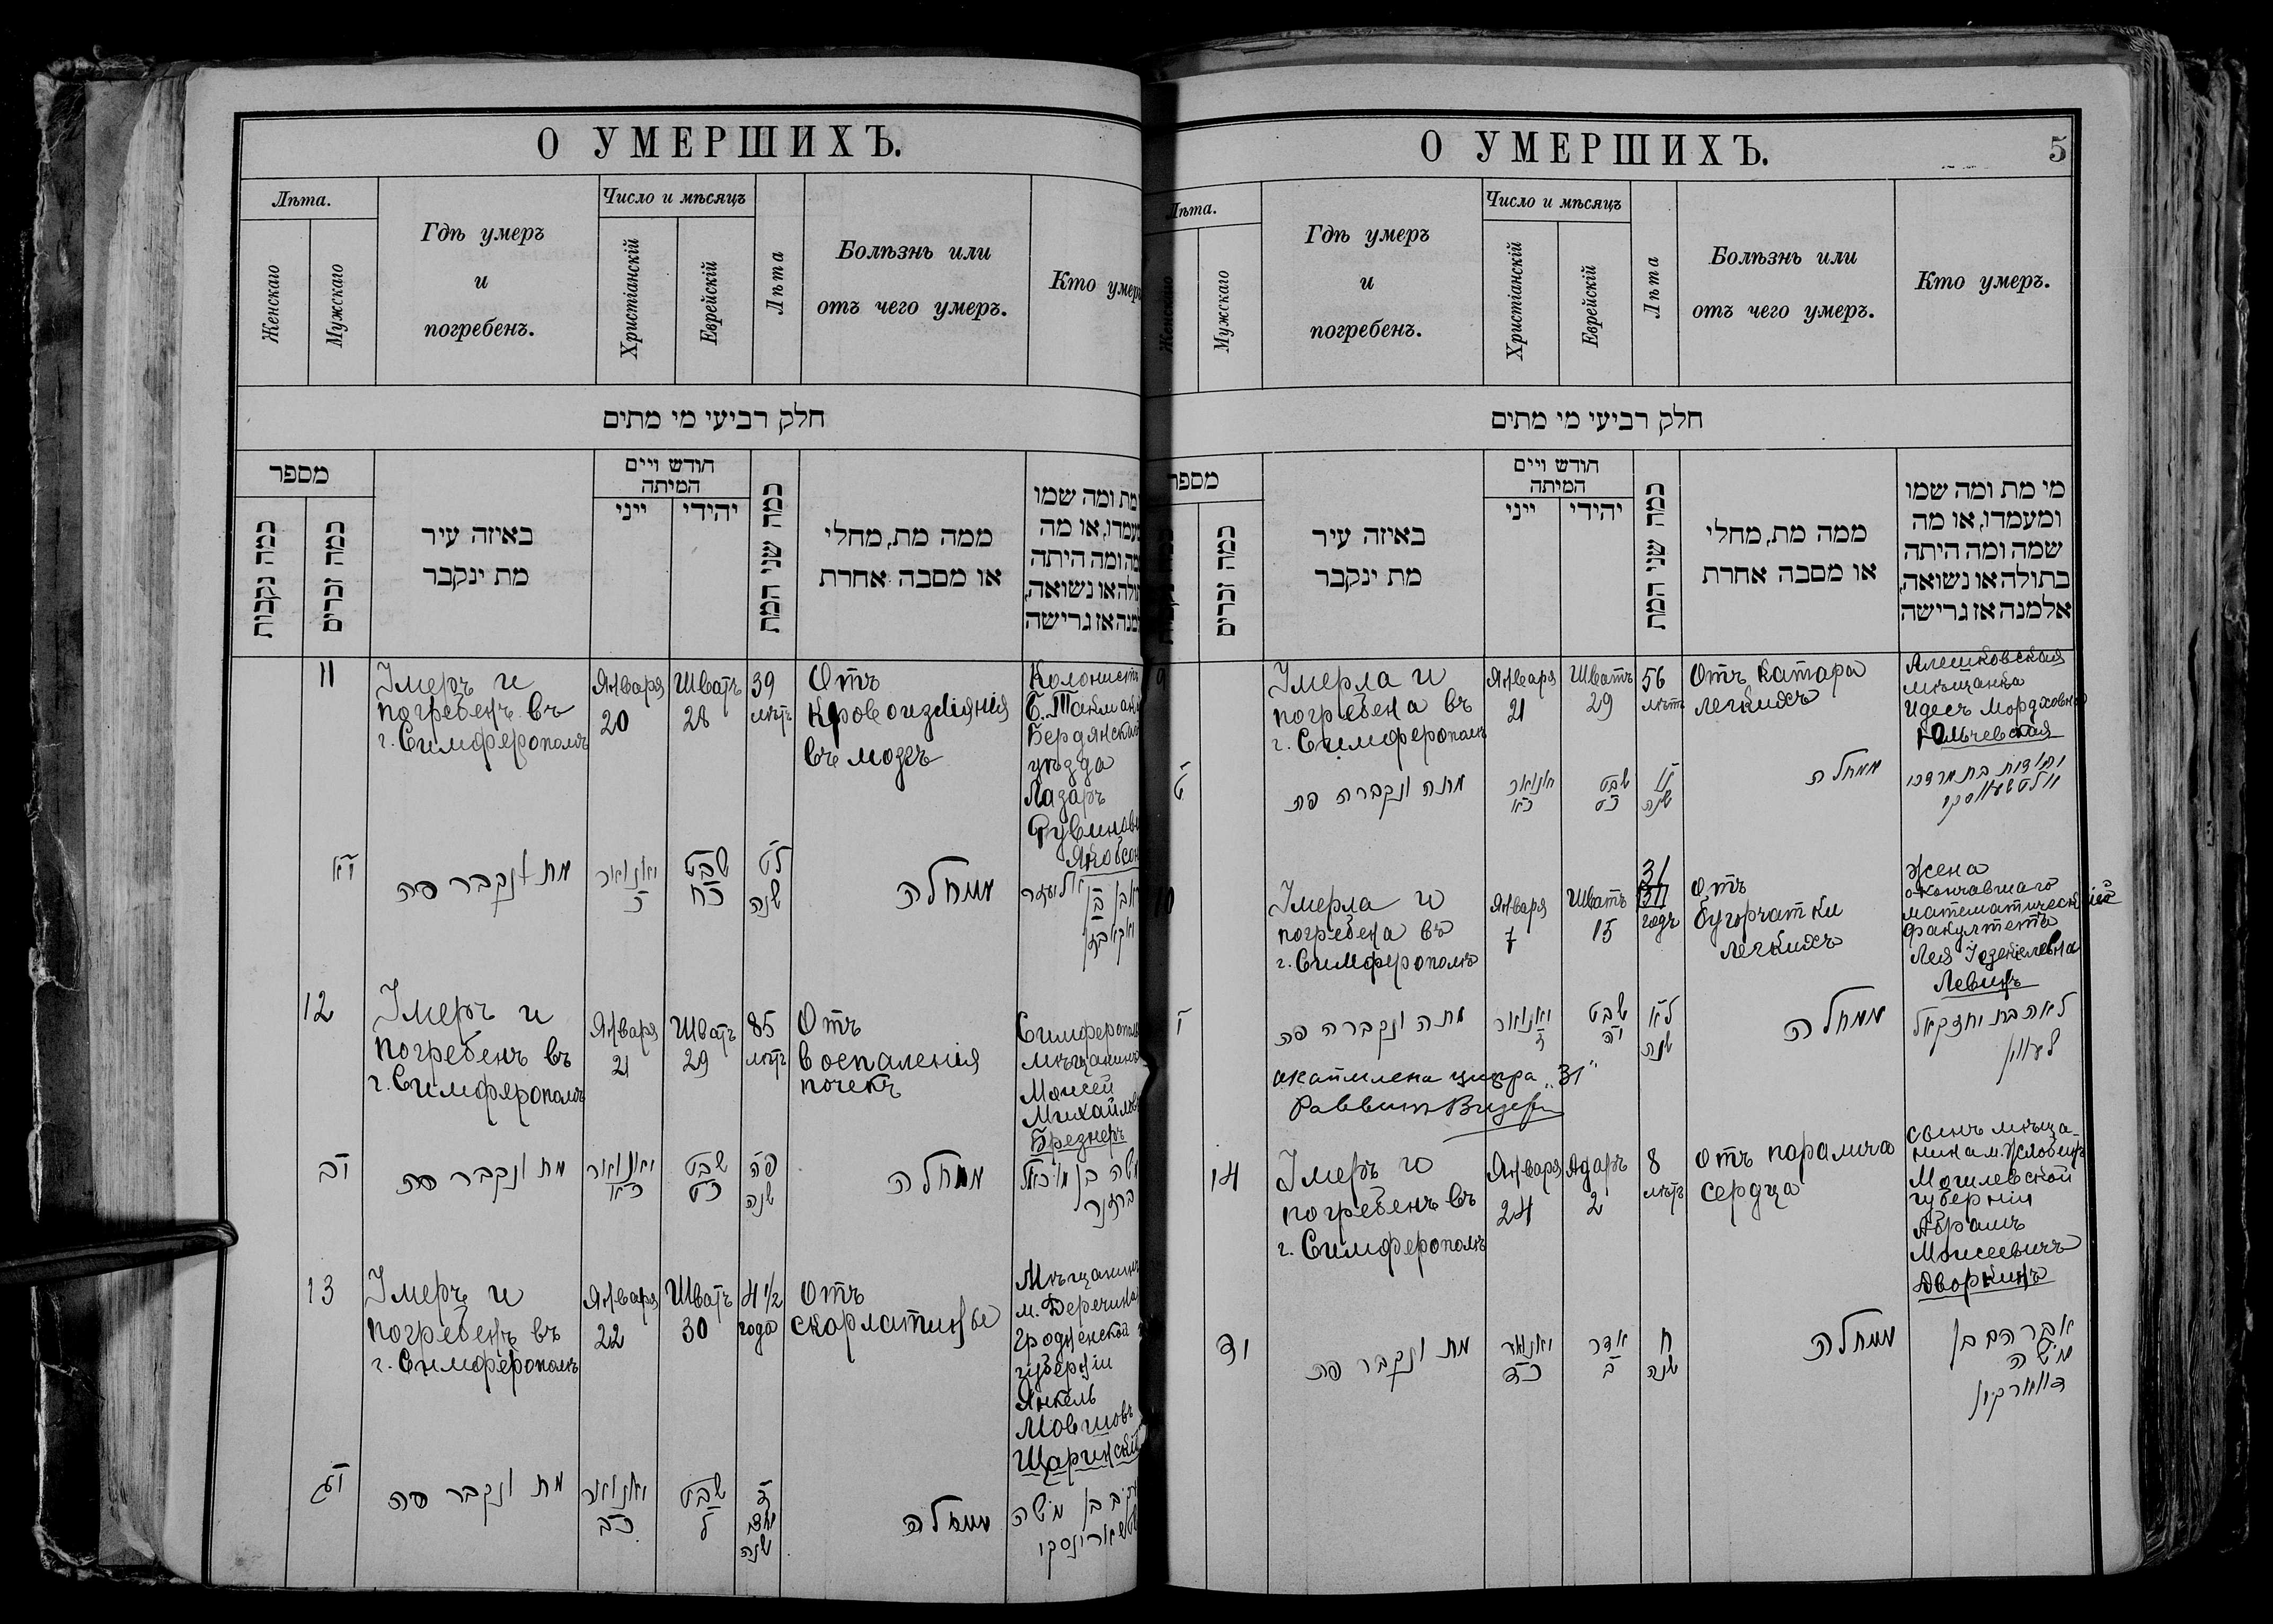 О УМЕРШИХЪ.
Лѣта.
Женскаго
Мужскаго
Гдѣ умеръ
и
погребенъ.
Число и мѣсяцъ
Христіанскій
Еврейскій
Лѣта
Болѣзнь или
отъ чего умеръ.
Кто умеръ
חלק רביעי מי מתים
מספר
כמה נקבות
כמה זכרים
באיזה עיר
מת ינקבר
חודש ויים
המיתה
ייני
יהודי
כמה שני המת
ממה מת, מחלי
או מסבה אחרת
מת ומה שמו
עמדו, או מה
מה ומה היתה
תולה או נשואה,
מנה אז גרישה
11
Умеръ и
погребенъ въ
г. Симферополѣ
Января
20
Шватъ
28
39
лѣтъ
Отъ
кровоизліянія
въ мозгъ
Колонистъ
Бердянскаго
уѣзда
Лазаръ
Рувинов
Якобсон
יא
מת ונקבר פה
יאנואר
כ
שבט
כח
לט
שנה
ממחלה
12
Умеръ и
погребенъ въ
г. Симферополѣ
Января
21
Шватъ
29
85
лѣтъ
Отъ
воспаленія
почекъ
Симферополь
мѣщанинъ
Моисей
Михайлов
Брезнеръ
יב
מת ונקבר פה
יאנואר
כא
שבט
כט
פה
שנה
ממחלה
משה בן מיכאל
ברזנר
13
Умеръ и
погребенъ въ
г. Симферополѣ
Января
22
Шватъ
30
4 1/2
года
Отъ
скарлатины
Мѣщанинъ
м. Деречина
Гродненской
губерніи
Янкель
Мовшовъ
Щаринскій
יג
מת ונקבר פה
יאנואר
כב
שבט
ל
ד
שנה
ממחלה
О УМЕРШИХЪ.
5
Лѣта.
Женскаго
Мужскаго
Гдѣ умеръ
и
погребенъ.
Число и мѣсяцъ
Христіанскій
Еврейскій
Лѣта
Болѣзнь или
отъ чего умеръ.
Кто умеръ.
חלק רביעי מי מתים
מספר
כמה זכרים
באיזה עיר
מת ינקבר
חודש ויים
המיתה
ייני
יהודי
כמה שני המת
ממה מת, מחלי
או מסבה אחרת
מי מת ומה שמו
ומעמדו, או מה
שמה ומה היתה
בתולה או נשואה,
אלמנה אז גרישה
9
Умерла и
погребена въ
г. Симферополѣ
Января
21
Шватъ
29
56
лѣтъ
Отъ катара
легкихъ
Алешковская
мѣщанка
Идесъ Мордховна
Юльчевская
ט
מתה ונקברה פה
יאנואר
כא
שבט
כט
נו
שנה
ממחלה
10
Умерла и
погребена въ
г. Симферополѣ
Января
7
Шватъ
15
31
31
годъ
Отъ
бугорчатки
легкихъ
Жена
окончавшаго
математическій
факултетъ
Лея Іезекилевна
Левинъ
י
מתה ונקברה פה
יאנואר
ז
שבט
יה
לא
שנה
ממחלה
לאה בת יחזקאל
לעווין
цыфра „31"
Раввинъ
14
Умеръ и
погребенъ въ
г. Симферополѣ
Января
24
Адаръ
2
8
лѣтъ
Отъ паралича
сердца
сынъ мѣща-
нина м. Жлобинъ
Могилевской
губерніи
Абрамъ
Моисеевичъ
Дворкинъ
יד
מת ונקבר פה
יאנואר
כד
אדר
ב
ח
שנה
ממחלה
אברהם בן
משה
דווארקין